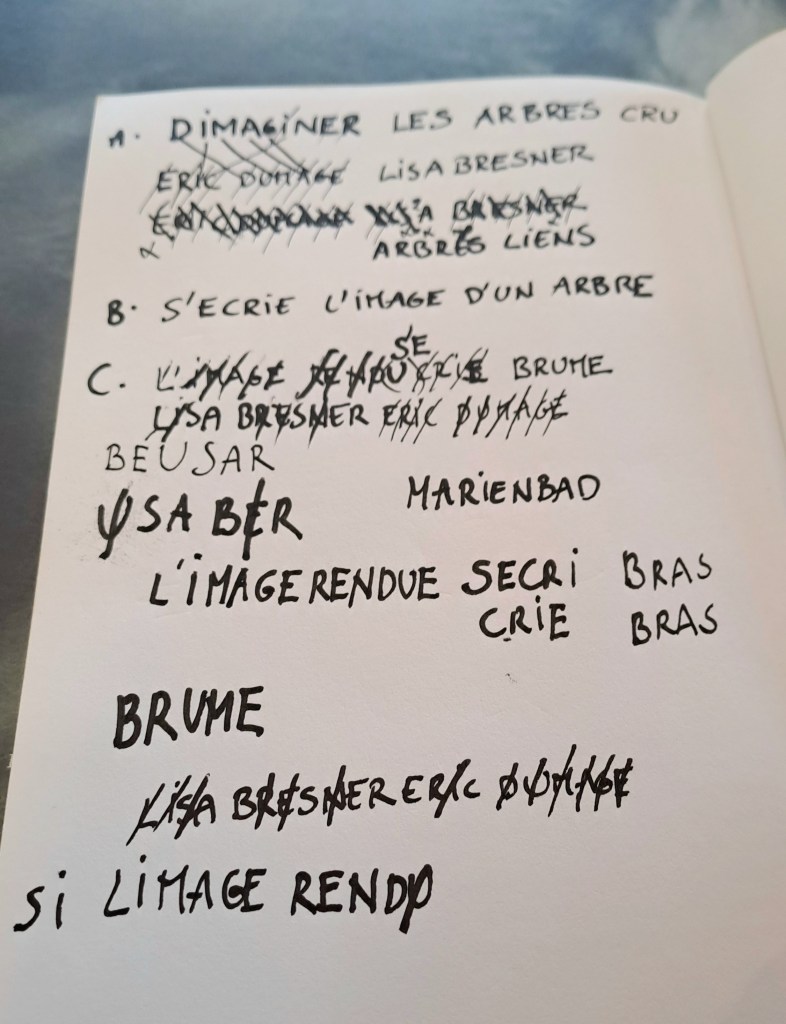 A. DIMAGINER LES ARBRES CRU
ERIC DUMAGE LISA BRESNER
BRESNER
ARBRES LIENS
B. S'ECRIE L'IMAGE D'UN ARBRE
SE
C. L'IMAGE BRUME
LISA BRESNER ERIC DUMAGE
BEUSAR
MARIENBAD
SA BER
L'IMAGE RENDUE SECRI BRAS
CRIE BRAS
BRUME
LISA BRESNER ERIC DUMAGE
Si LIMAGE RENDU